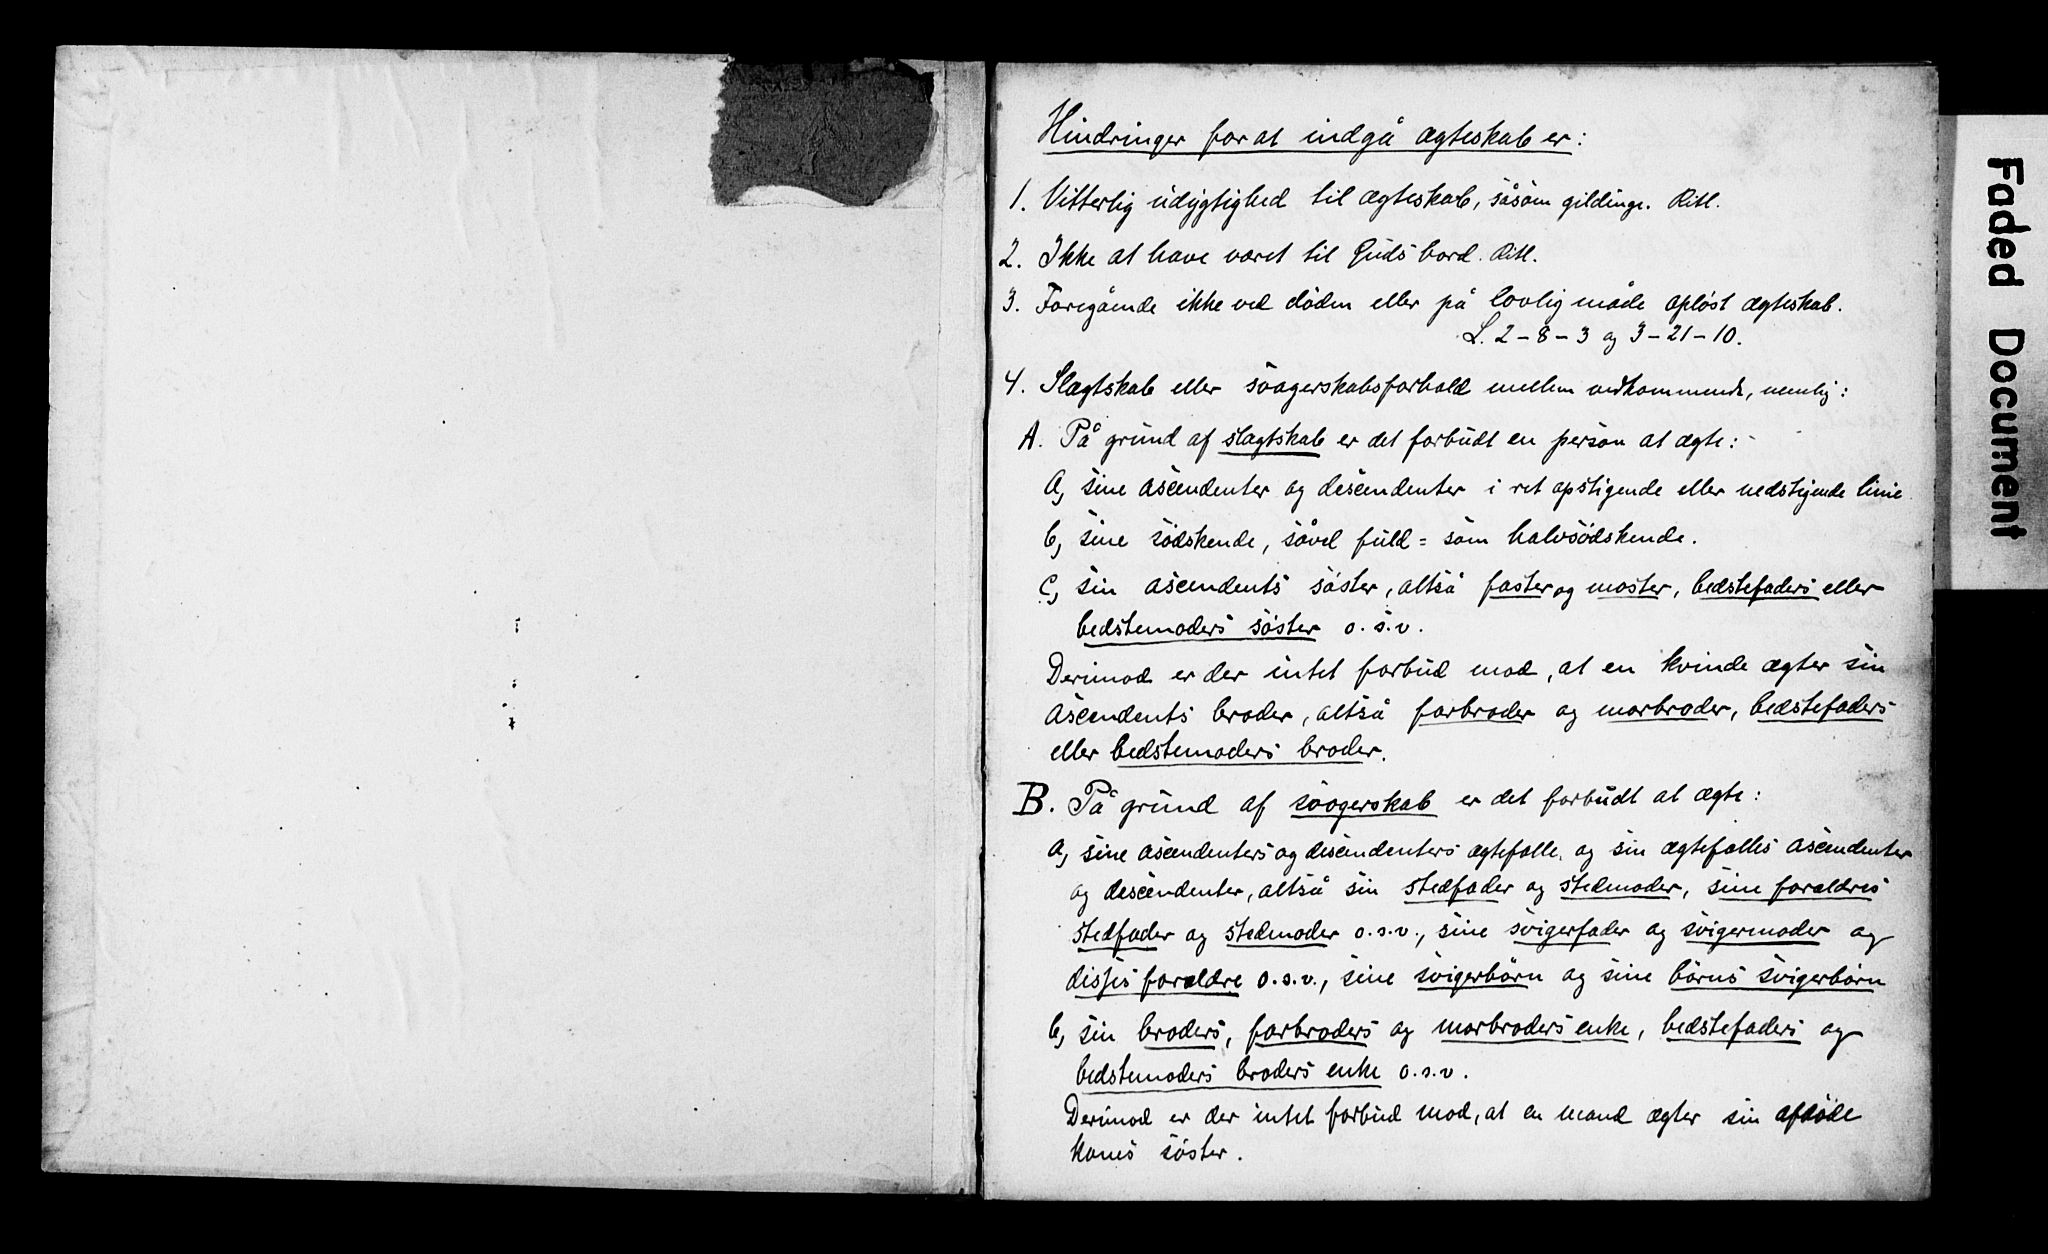 Hindringer for at indgå ægteskab er:
1. Vitterlig udygtighed til ægteskab, såsom gildinge. Ritl.
2. Ikke at have været til Guds bord. Ritl.
3. Foregående ikke ved döden eller på lovlig måde opløst ægteskab.
L. 2-8-3 og 3-21-10.
4. Slægtskab eller svogerskabsforhold mellem vedkommende, nemlig:
A. På grund af slægtskab er det forbudt en person at ægte:
a, sine ascendenter og descendenter i ret opstigende eller nedstigende linie
b, sine södskende, såvel fuld= som halvsödskende.
c, sin ascendents söster, altså faster og moster, bedstefaders eller
bedstemoders søster o.s.v.
Derimod er der intet forbud mod, at en kvinde ægter sin
ascendents broder, altså farbroder og morbroder, bedstefaders
eller bedstemoders broder.
B. På grund af svogerskab er det forbudt at ægte:
a, sine ascendenters og descendenters ægtefælle, og sin ægtefælles ascendenter
og descendenter, altså sin stedfader og stedmoder, sine forældres
stedfader og stedmoder o.s.v., sine svigerfader og svigermoder og
disses forældre o.s.v., sine svigerbörn og sine börns svigerbörn
b, sin broders, farbroders og morbroders enke, bedstefaders og
bedstemoders broders enke o.s.v.
Derimod er der intet forbud mod, at en mand ægter sin afdöde
kones söster.
Faded Document